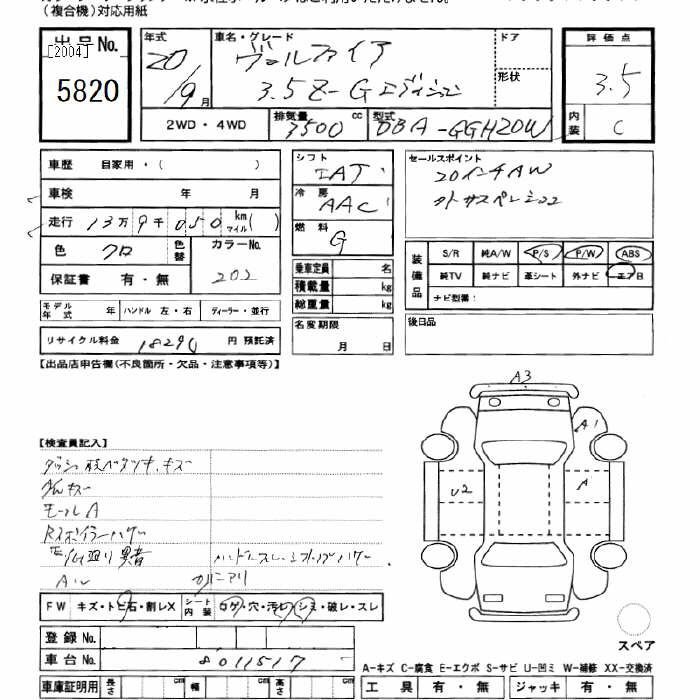 (複合機)対応用紙
出品No.
[2004]
5820
年式
20/9月
車名・グレード
ヴェルファイア
3.5Z-Gエディション
ドア
形状
評価点
3.5
内装
C
2WD・4WD
排気量
3500
cc
型式
DBA-GGH20W
車歴 自家用・( )
車検 年 月
走行 13万9千050 km マイル( )
色 クロ
色替
カラーNo.
202
保証書 有・無
モデル年式 年 ハンドル 左・右 ディーラー・並行
リサイクル料金 18290 円 預託済
シフト
IAT
冷房
AAC
燃料
G
乗車定員 名
積載量 kg
総重量 kg
名変期限
月 日
セールスポイント
20インチAW
装備品
S/R 純A/W P/S P/W ABS
純TV 純ナビ 革シート 外ナビ エアB
ナビ型番:
後日品
【出品店申告欄(不良箇所・欠品・注意事項等)】
A3
A1
U2
A
【検査員記入】
キズ
モールA
Rスポイラー
異音
FW キズ・トビ石・割レX シート内装 コゲ・穴・汚レ・シミ・破レ・スレ
登録No.
車台No. 8011517
スペア
A-キズ C-腐食 E-エクボ S-サビ U-凹ミ W-補修 XX-交換済
車庫証明用 長さ cm 幅 cm 高さ cm 工具 有・無 ジャッキ 有・無